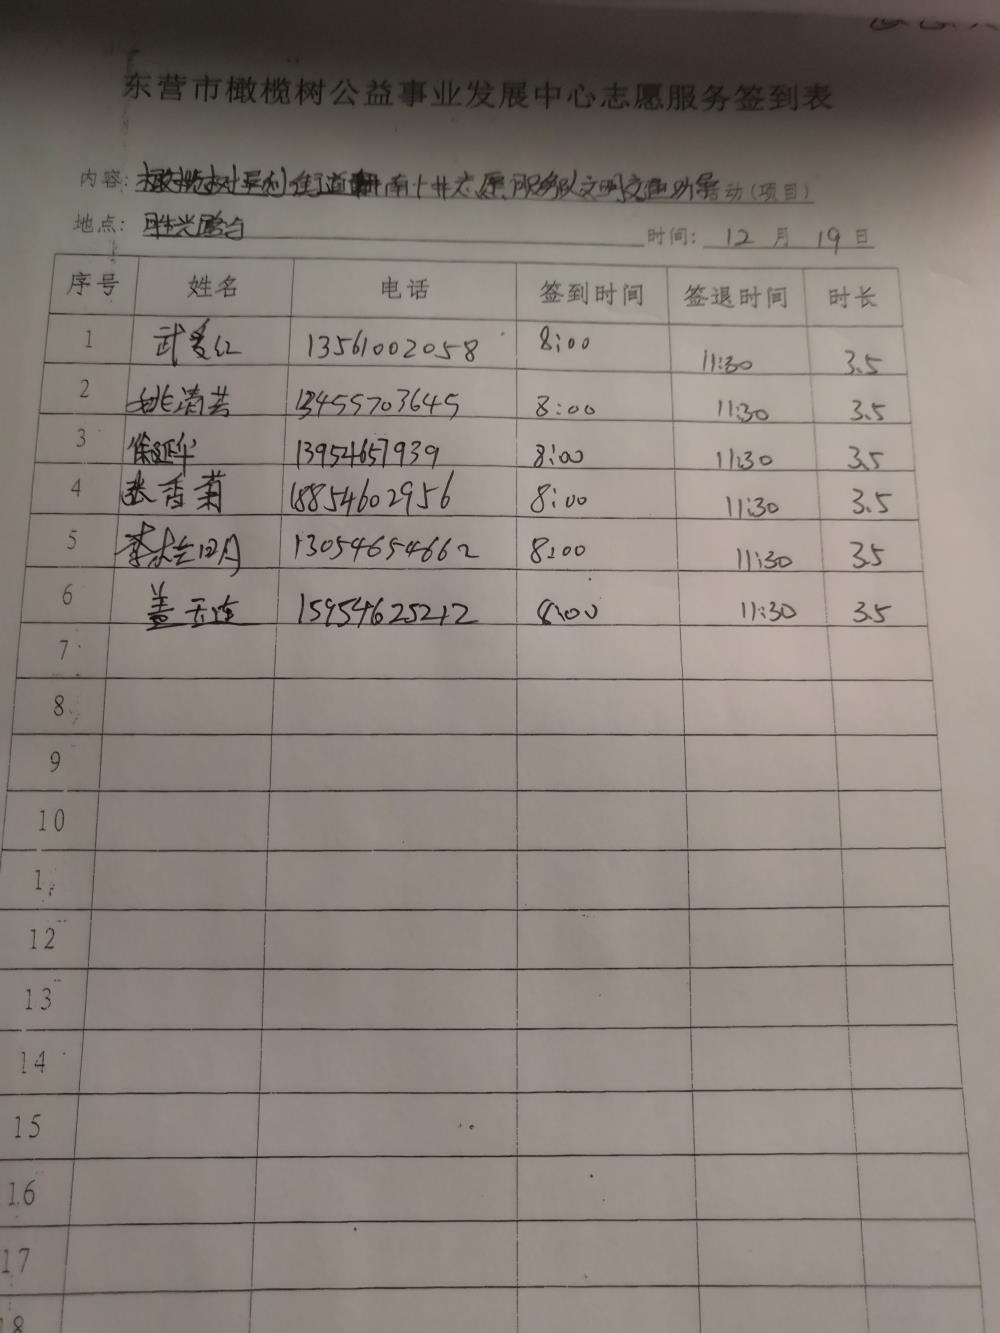 东营市橄榄树公益事业发展中心志愿服务签到表
内容: 橄榄树垦利街道 南十井志愿服务队文明交通劝导活动(项目)
地点: 胜兴路台
时间: 12月19日
序号 姓名 电话 签到时间 签退时间 时长
1 武秀红 13561002058 8:00 11:30 3.5
2 姚清芸 13455703645 8:00 11:30 3.5
3 徐延华 13954657939 8:00 11:30 3.5
4 张香菊 18854602956 8:00 11:30 3.5
5 李 13054654662 8:00 11:30 3.5
6 盖玉连 15954625212 8:00 11:30 3.5
7
8
9
10
1
12
13
14
15
16
17
18